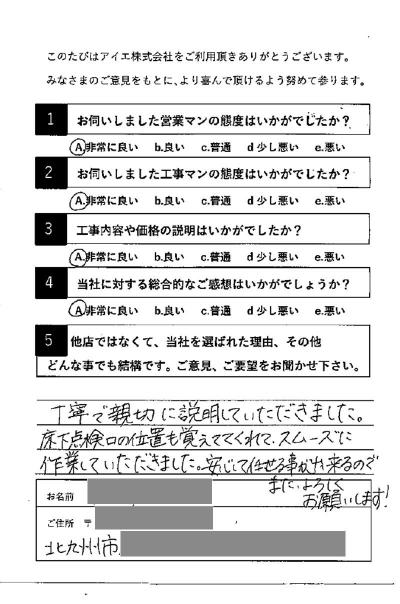 このたびはアイエ株式会社をご利用頂きありがとうございます。
みなさまのご意見をもとに、より喜んで頂けるよう努めて参ります。
1 お伺いしました営業マンの態度はいかがでしたか？
A.非常に良い b.良い c.普通 d 少し悪い e.悪い
2 お伺いしました工事マンの態度はいかがでしたか？
A.非常に良い b.良い c.普通 d 少し悪い e.悪い
3 工事内容や価格の説明はいかがでしたか？
A.非常に良い b.良い c.普通 d 少し悪い e.悪い
4 当社に対する総合的なご感想はいかがでしょうか？
A.非常に良い b.良い c.普通 d 少し悪い e.悪い
5 他店ではなくて、当社を選ばれた理由、その他
どんな事でも結構です。ご意見、ご要望をお聞かせ下さい。
丁寧で親切に説明していただきました。
床下点検口の位置も覚えててくれて、スムーズに
作業していただきました。安心して任せる事が出来るので
また、よろしく
お願いします!
お名前
ご住所 〒
北九州市